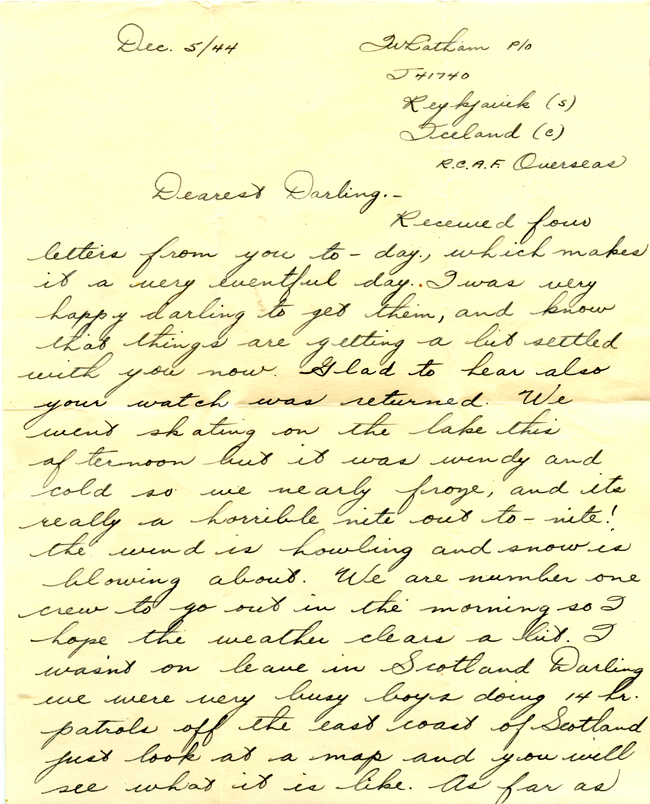 Dec. 5/44
Whatham P/O
J41740
Reykjavik (S)
Iceland (C)
R.C.A.F. Overseas
Dearest Darling.-
Received four
letters from you to-day, which makes
it a very eventful day. I was very
happy darling to get them, and know
that things are getting a bit settled
with you now. Glad to hear also
your watch was returned. We
went skating on the lake this
afternoon but it was windy and
cold so we nearly froze, and its
really a horrible nite out to-nite!
the wind is howling and snow is
blowing about. We are number one
crew to go out in the morning so I
hope the weather clears a bit. I
wasnt on leave in Scotland Darling
we were very busy boys doing 14 hr.
patrols off the east coast of Scotland
just look at a map and you will
see what it is like. As far as